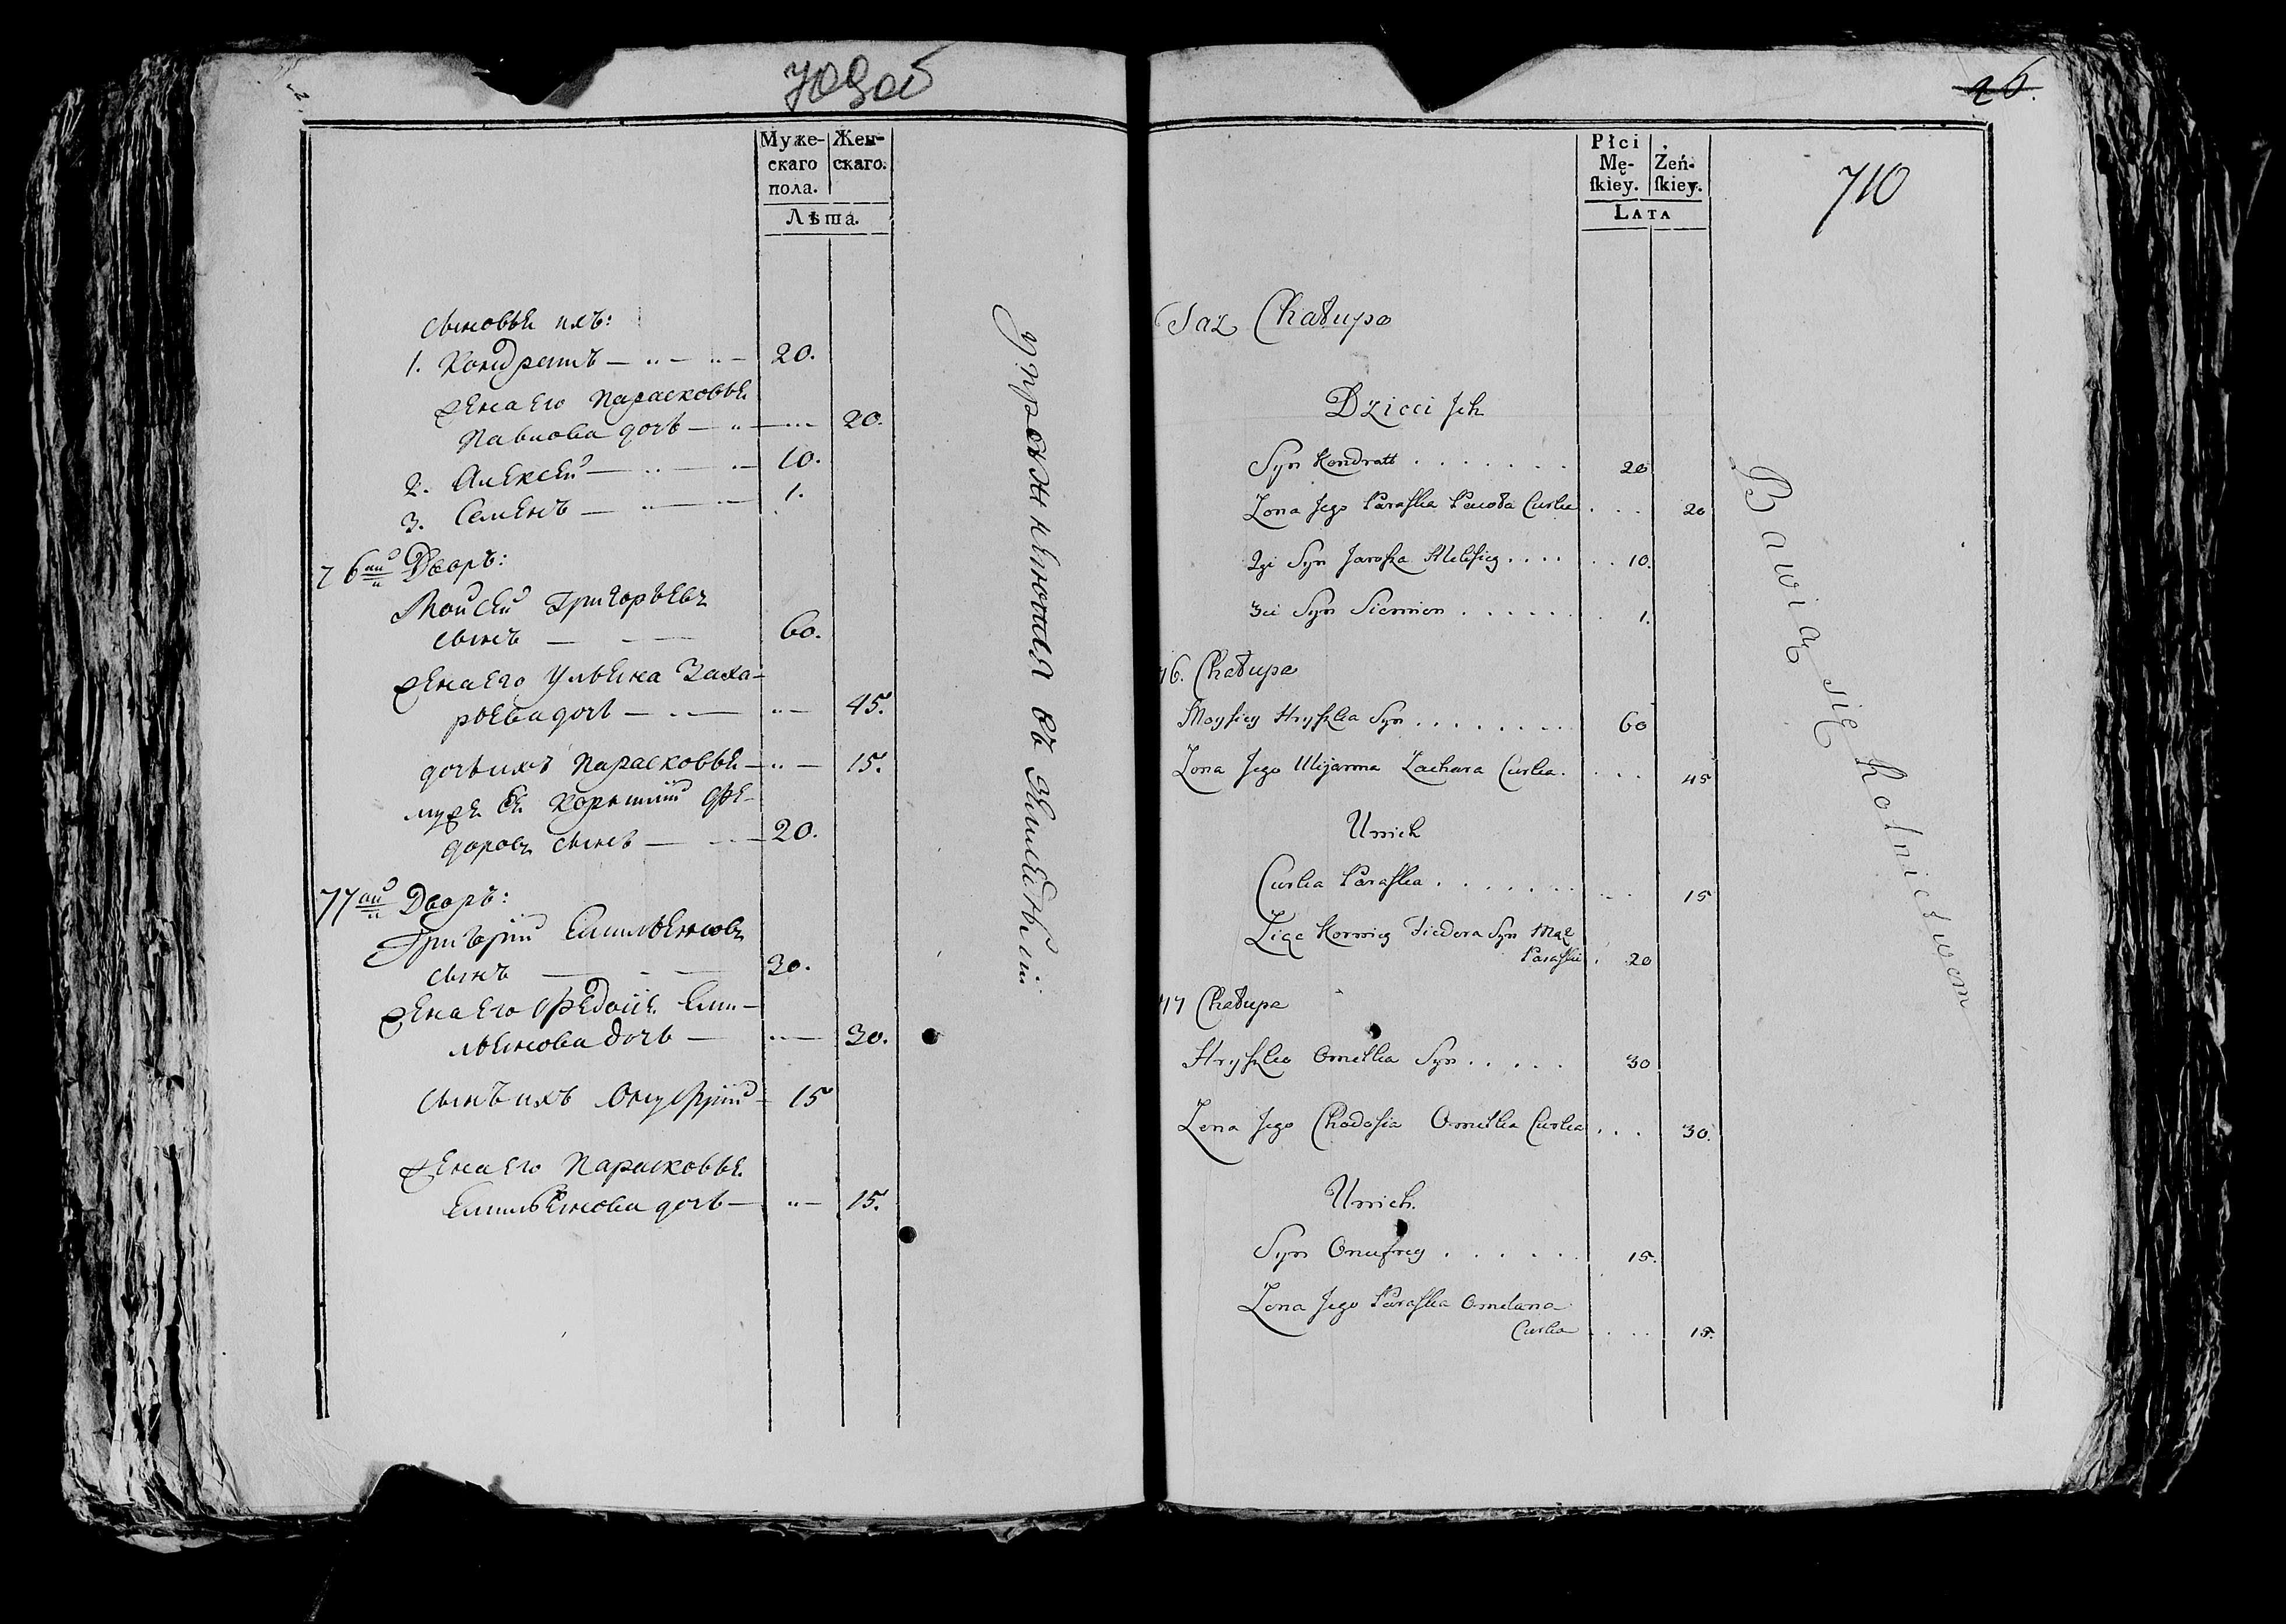 709об
Муже- Жен-
скаго скаго.
пола.
Лѣта.
сыновья ихъ:
1. Кондратъ — 20.
жена его Парасковья
Павлова дочь — 20.
2. Алексей — 10.
3. Семенъ — 1.
76ый Дворъ:
Мойсей Григорьевъ
сынъ — 60.
жена его Ульяна Заха-
рьева дочь — 45.
дочь ихъ Парасковья — 15.
мужъ ея Корнилий Фе-
доровъ сынъ — 20.
77ый Дворъ:
Григорий Емельяновъ
сынъ — 30.
жена его Федося Еми-
льянова дочь — 30.
сынъ ихъ Онуфрий 15
жена его Парасковья
Емильянова дочь — 15.
упражняются въ
26.
710
Płci
Mę- Żeń-
skiey. skiey.
LATA
Taz Chałupa
Dzieci Ich
Syn Kondratt . . . . . . . 20
Zona Jego Paraska Curka . . . 20
2gi Syn . . . . 10.
3ci Syn Siemion . . . . . 1.
76. Chałupa
Moysiey Hryszka Syn . . . . . . . . 60
Zona Jego Ulijanna Zachara Curka. . . . 45
U nich
Curka Paraska . . . . . . . 15
Zięc Korniey Fiedora Syn Mąż
Paraski . 20
77 Chałupa
Hryszko Omelka Syn . . . . . 30
Zona Jego Chodosia Omelka Curka . . . 30.
U nich.
Syn Onufrey . . . . . . 15.
Zona Jego Paraska Omelana
Curka . . . . 15.
Bawią się Rolnictwem